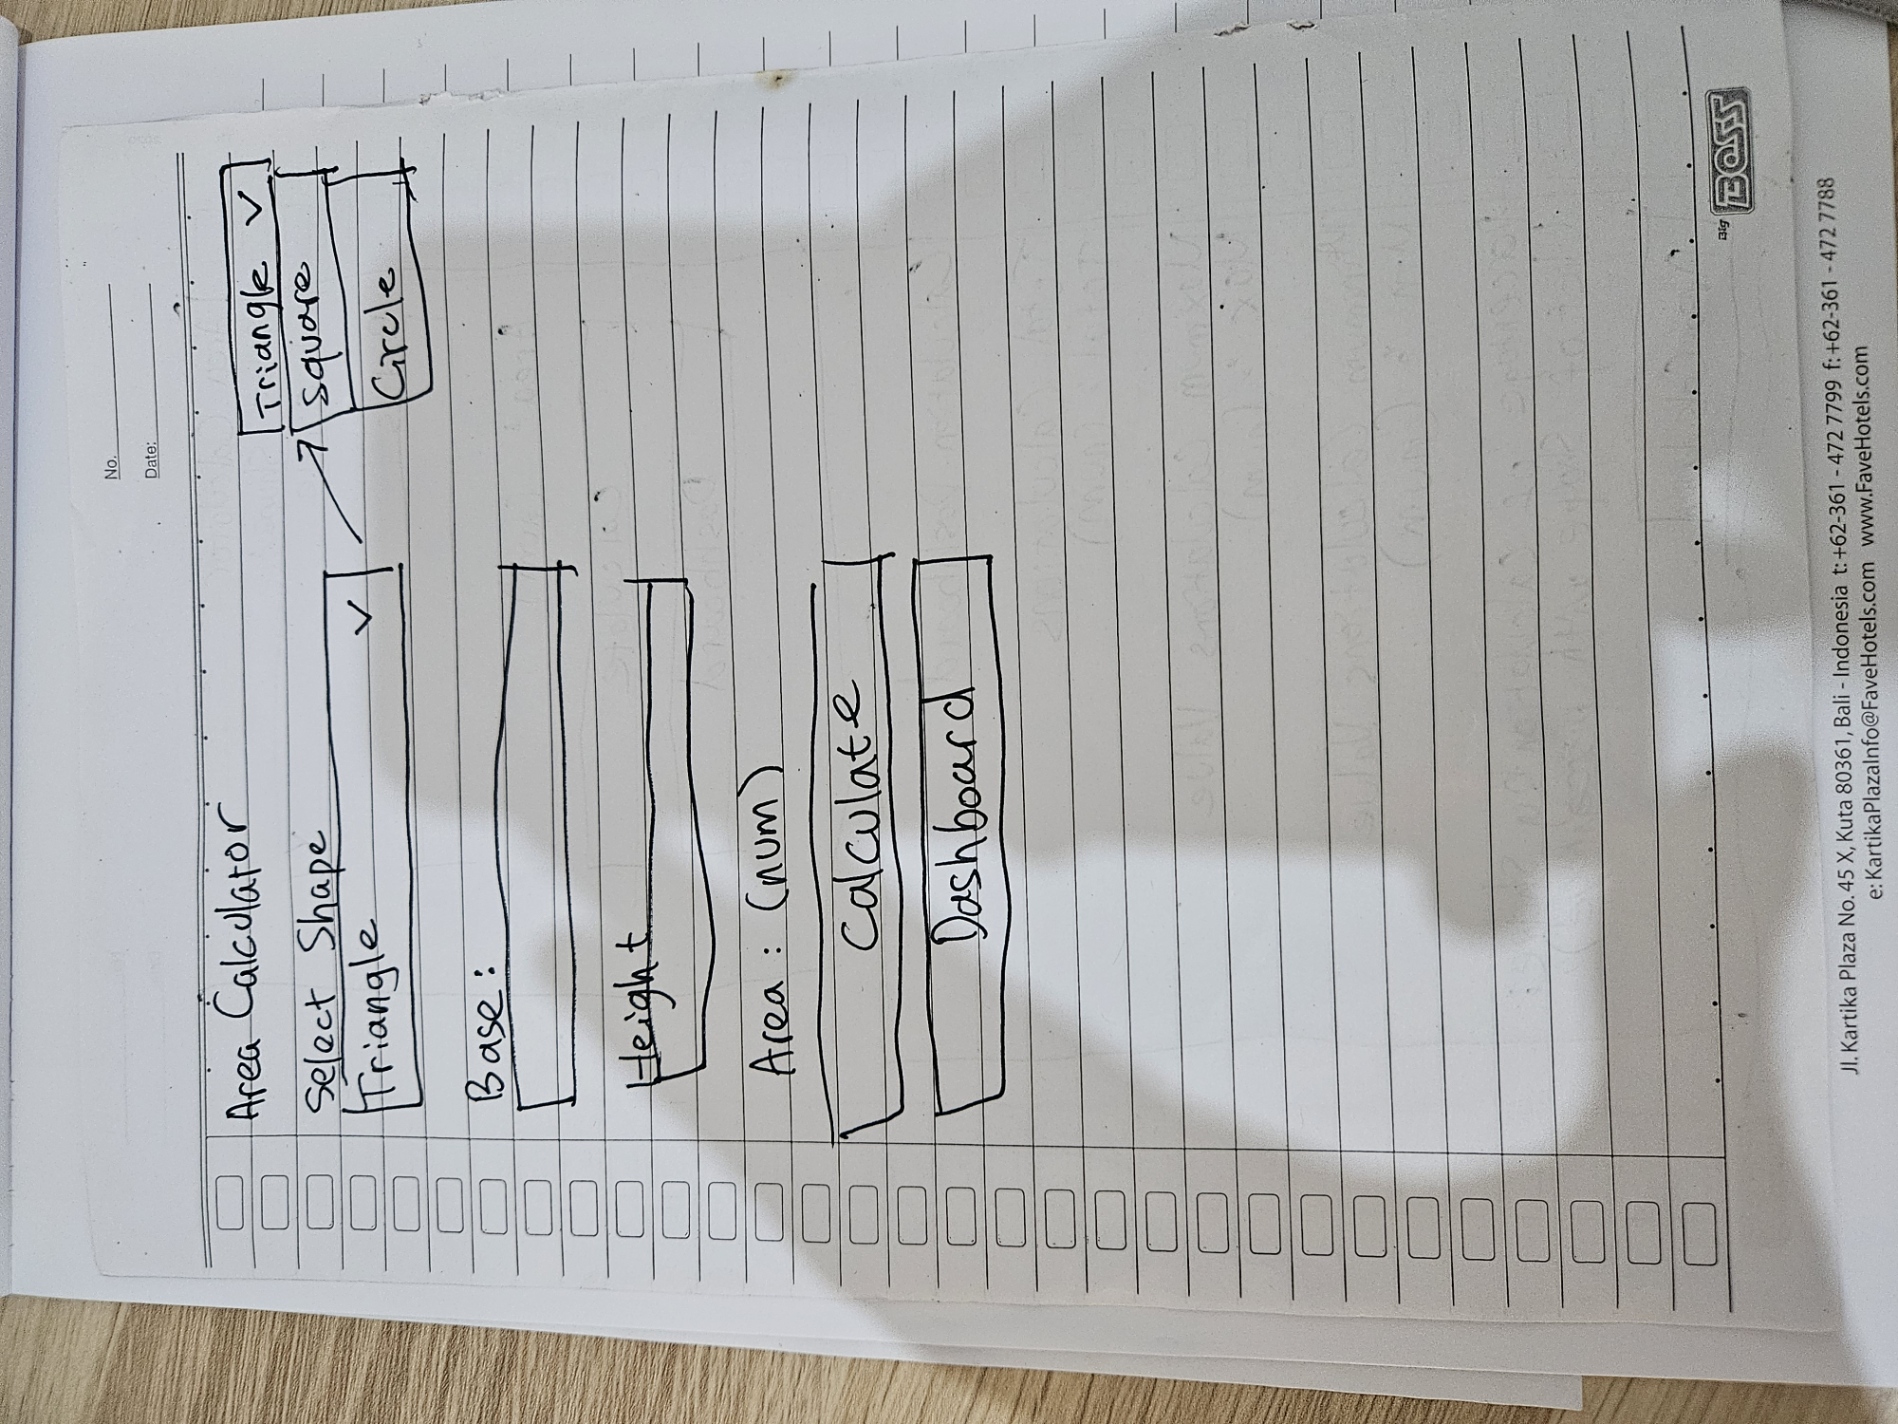 No.
Date:
Area Calculator
Select Shape
Triangle
Triangle
Square
Circle
Base:
Height
Area : (num)
Calculate
Dashboard
Big BOSS
Jl. Kartika Plaza No. 45 X, Kuta 80361, Bali - Indonesia t: +62-361 - 472 7799 f: +62-361 - 472 7788
e: KartikaPlazaInfo@FaveHotels.com www.FaveHotels.com